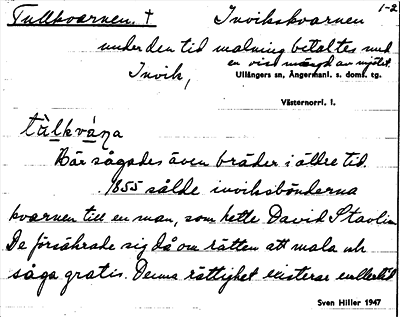 Tullkvarnen. † Invikskvarnen 1-2
under den tid malning betaltes med
en viss mängd av mjölet.
Invik,
Ullångers sn, Ångermanl. s. doms. tg.
Västernorrl. l.
tu̇lkvána
Här sågades även bräder i äldre tid.
1855 sålde inviksbönderna
kvarnen till en man, som hette David Stavlin
De försäkrade sig då om rätten att mala och
såga gratis. Denna rättighet existerar
Sven Hiller 1947